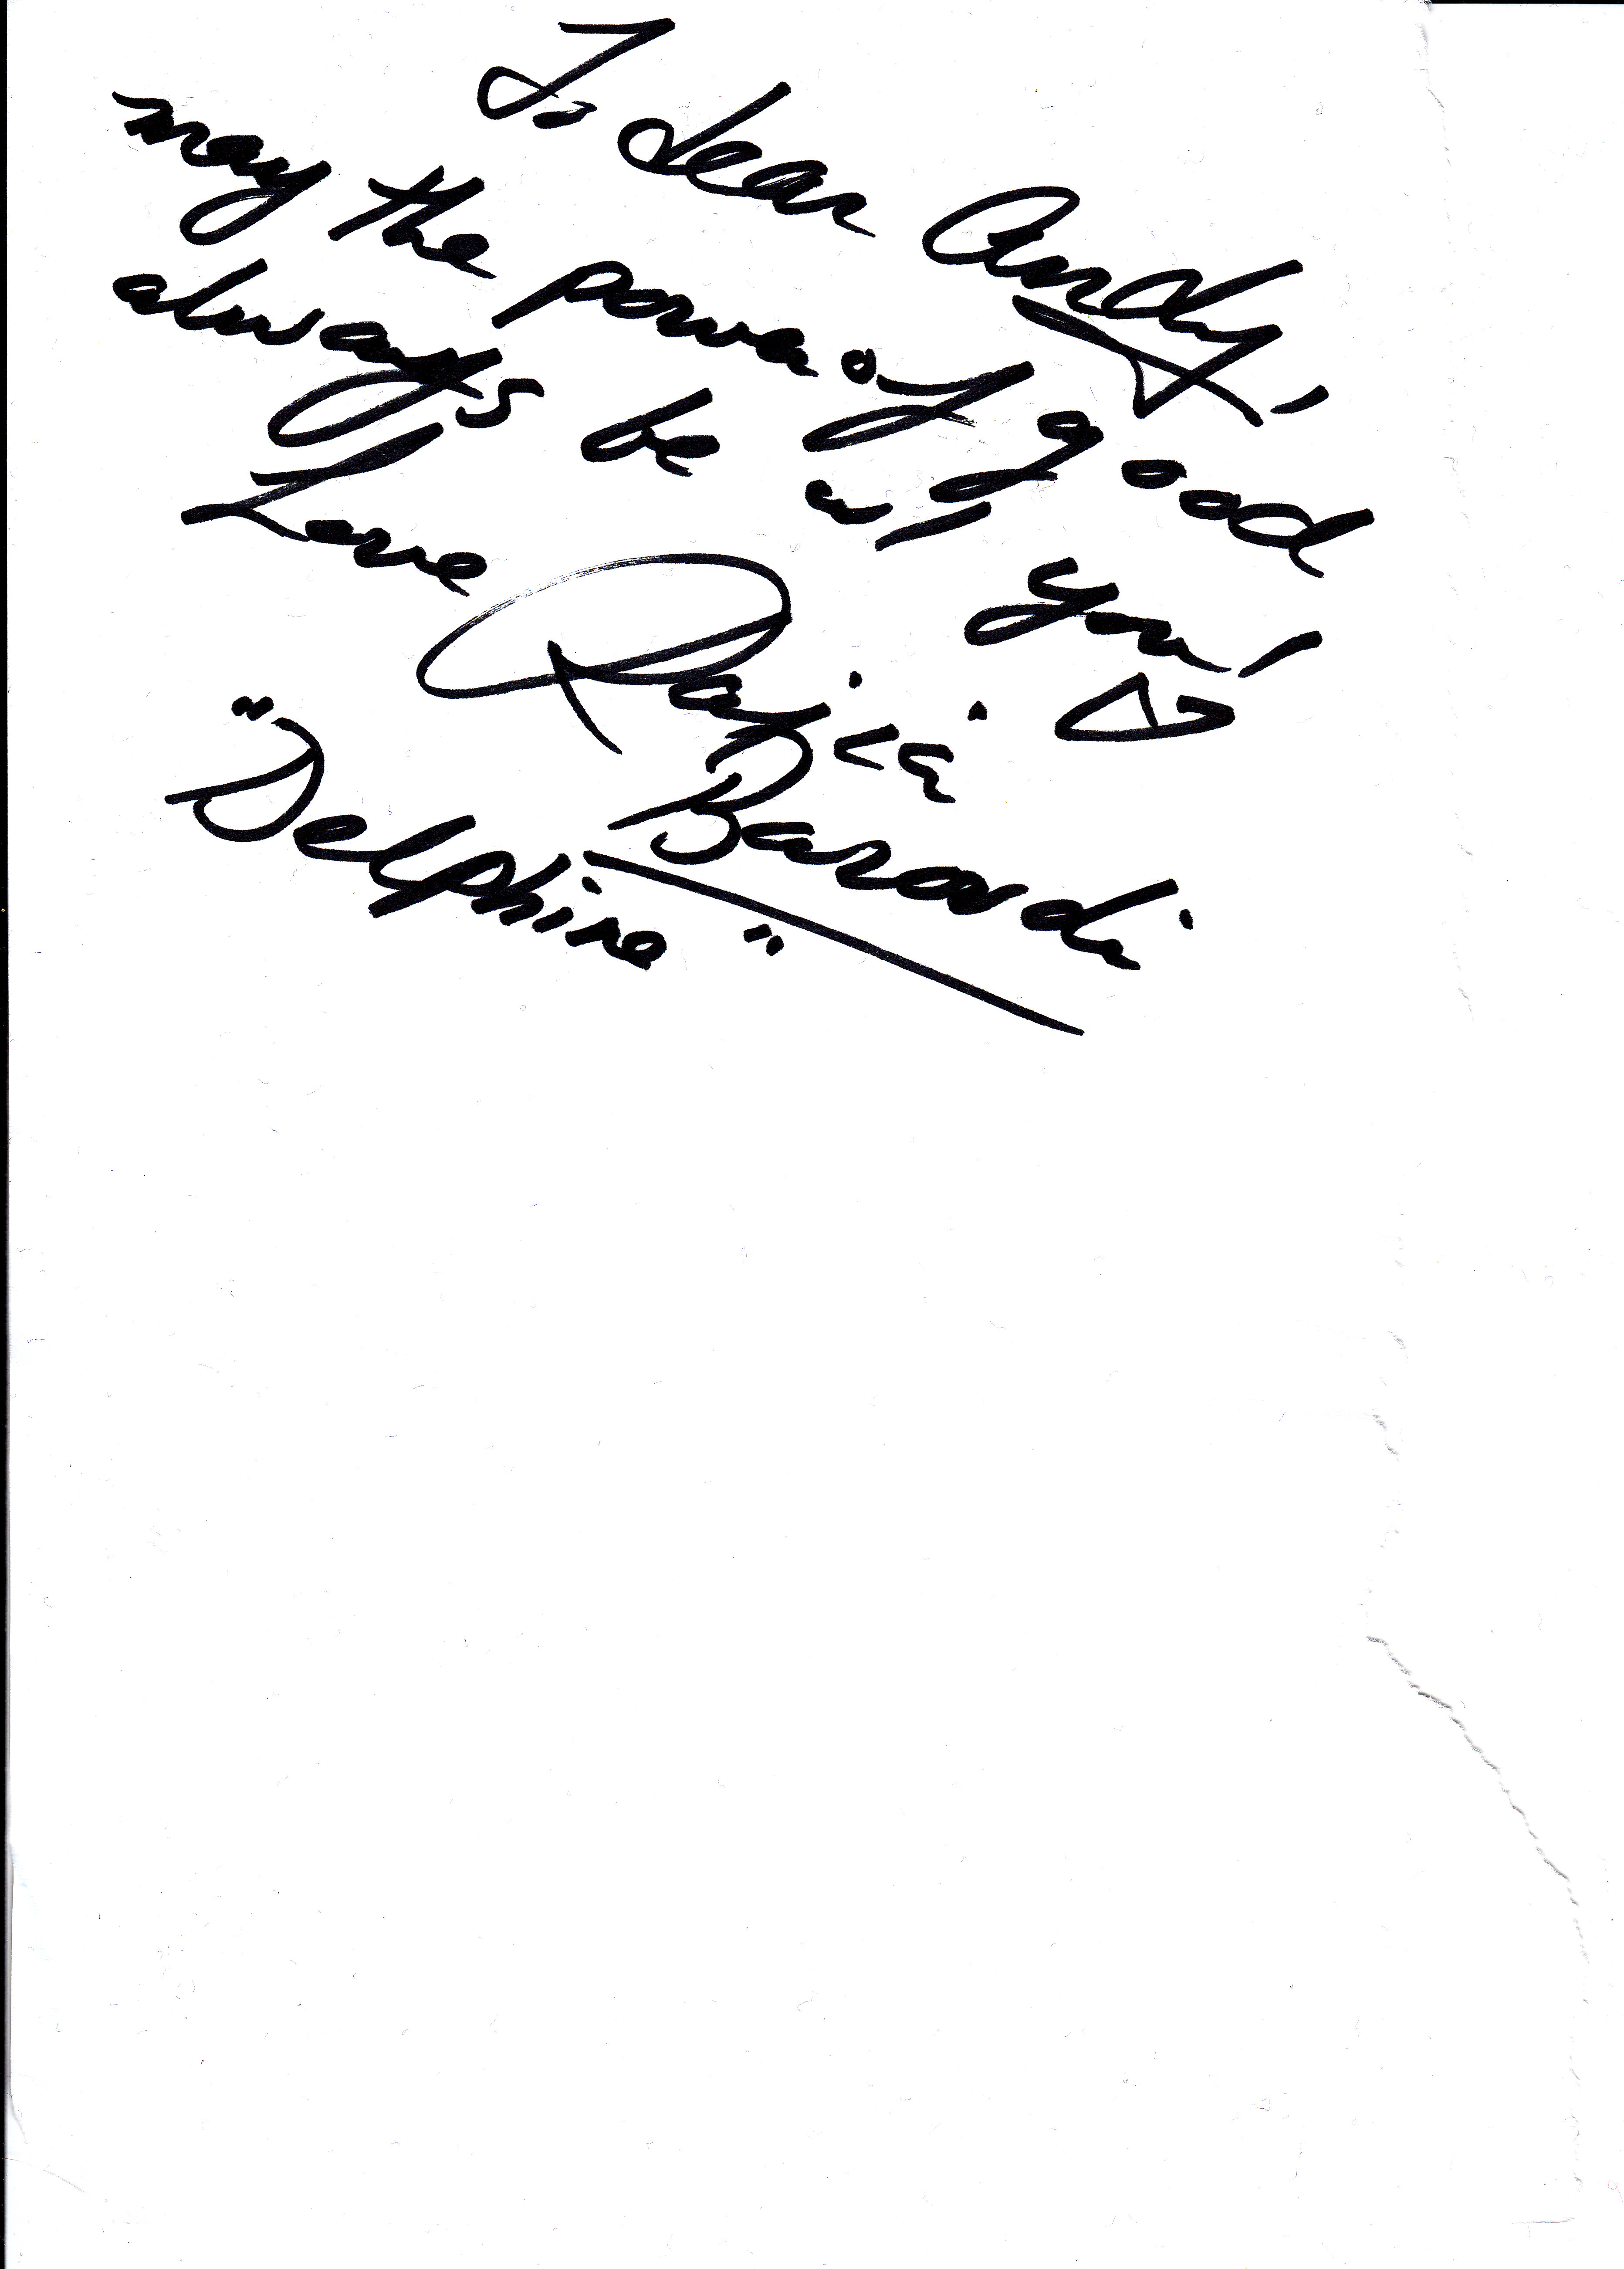 To dear Andy,
may the power of good
always be w/ you!
Love
Rajia
Baroudi
"Delphine"